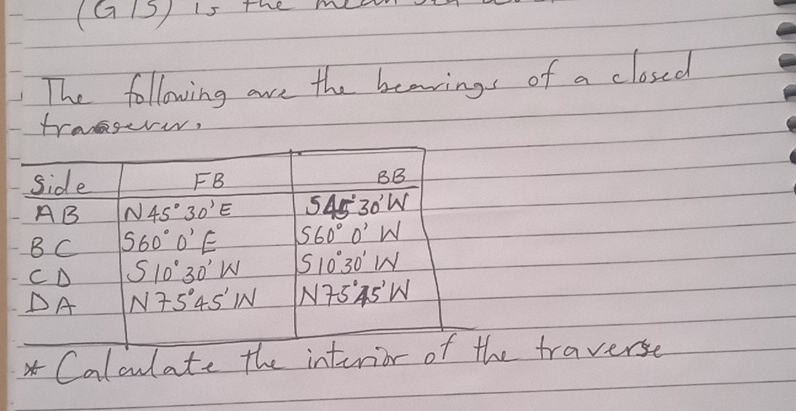 (GIS) is the mean
The following are the bearings of a closed
traverse.
Side FB BB
AB N45°30'E S45°30'W
BC S60°0'E S60°0'W
CD S10°30'W S10°30'W
DA N75°45'W N75°45'W
* Calculate the interior of the traverse